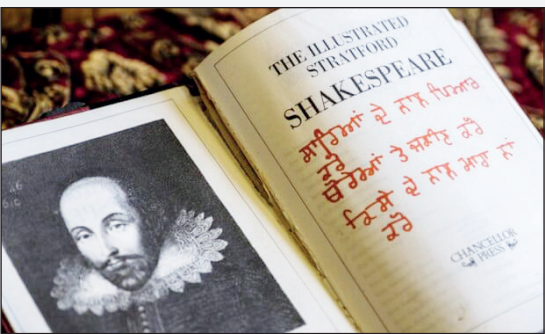 THE ILLUSTRATED
STRATFORD
SHAKESPEARE
ਸਾਰਿਆਂ ਦੇ ਨਾਲ ਪਿਆਰ
ਕਰੋ
ਥੋੜਿਆਂ ਤੇ ਜਕੀਨ ਕਰੋ
ਕਿਸੇ ਦੇ ਨਾਲ ਮਾੜਾ ਨਾਂ
ਕਰੋ
CHANCELLOR
PRESS